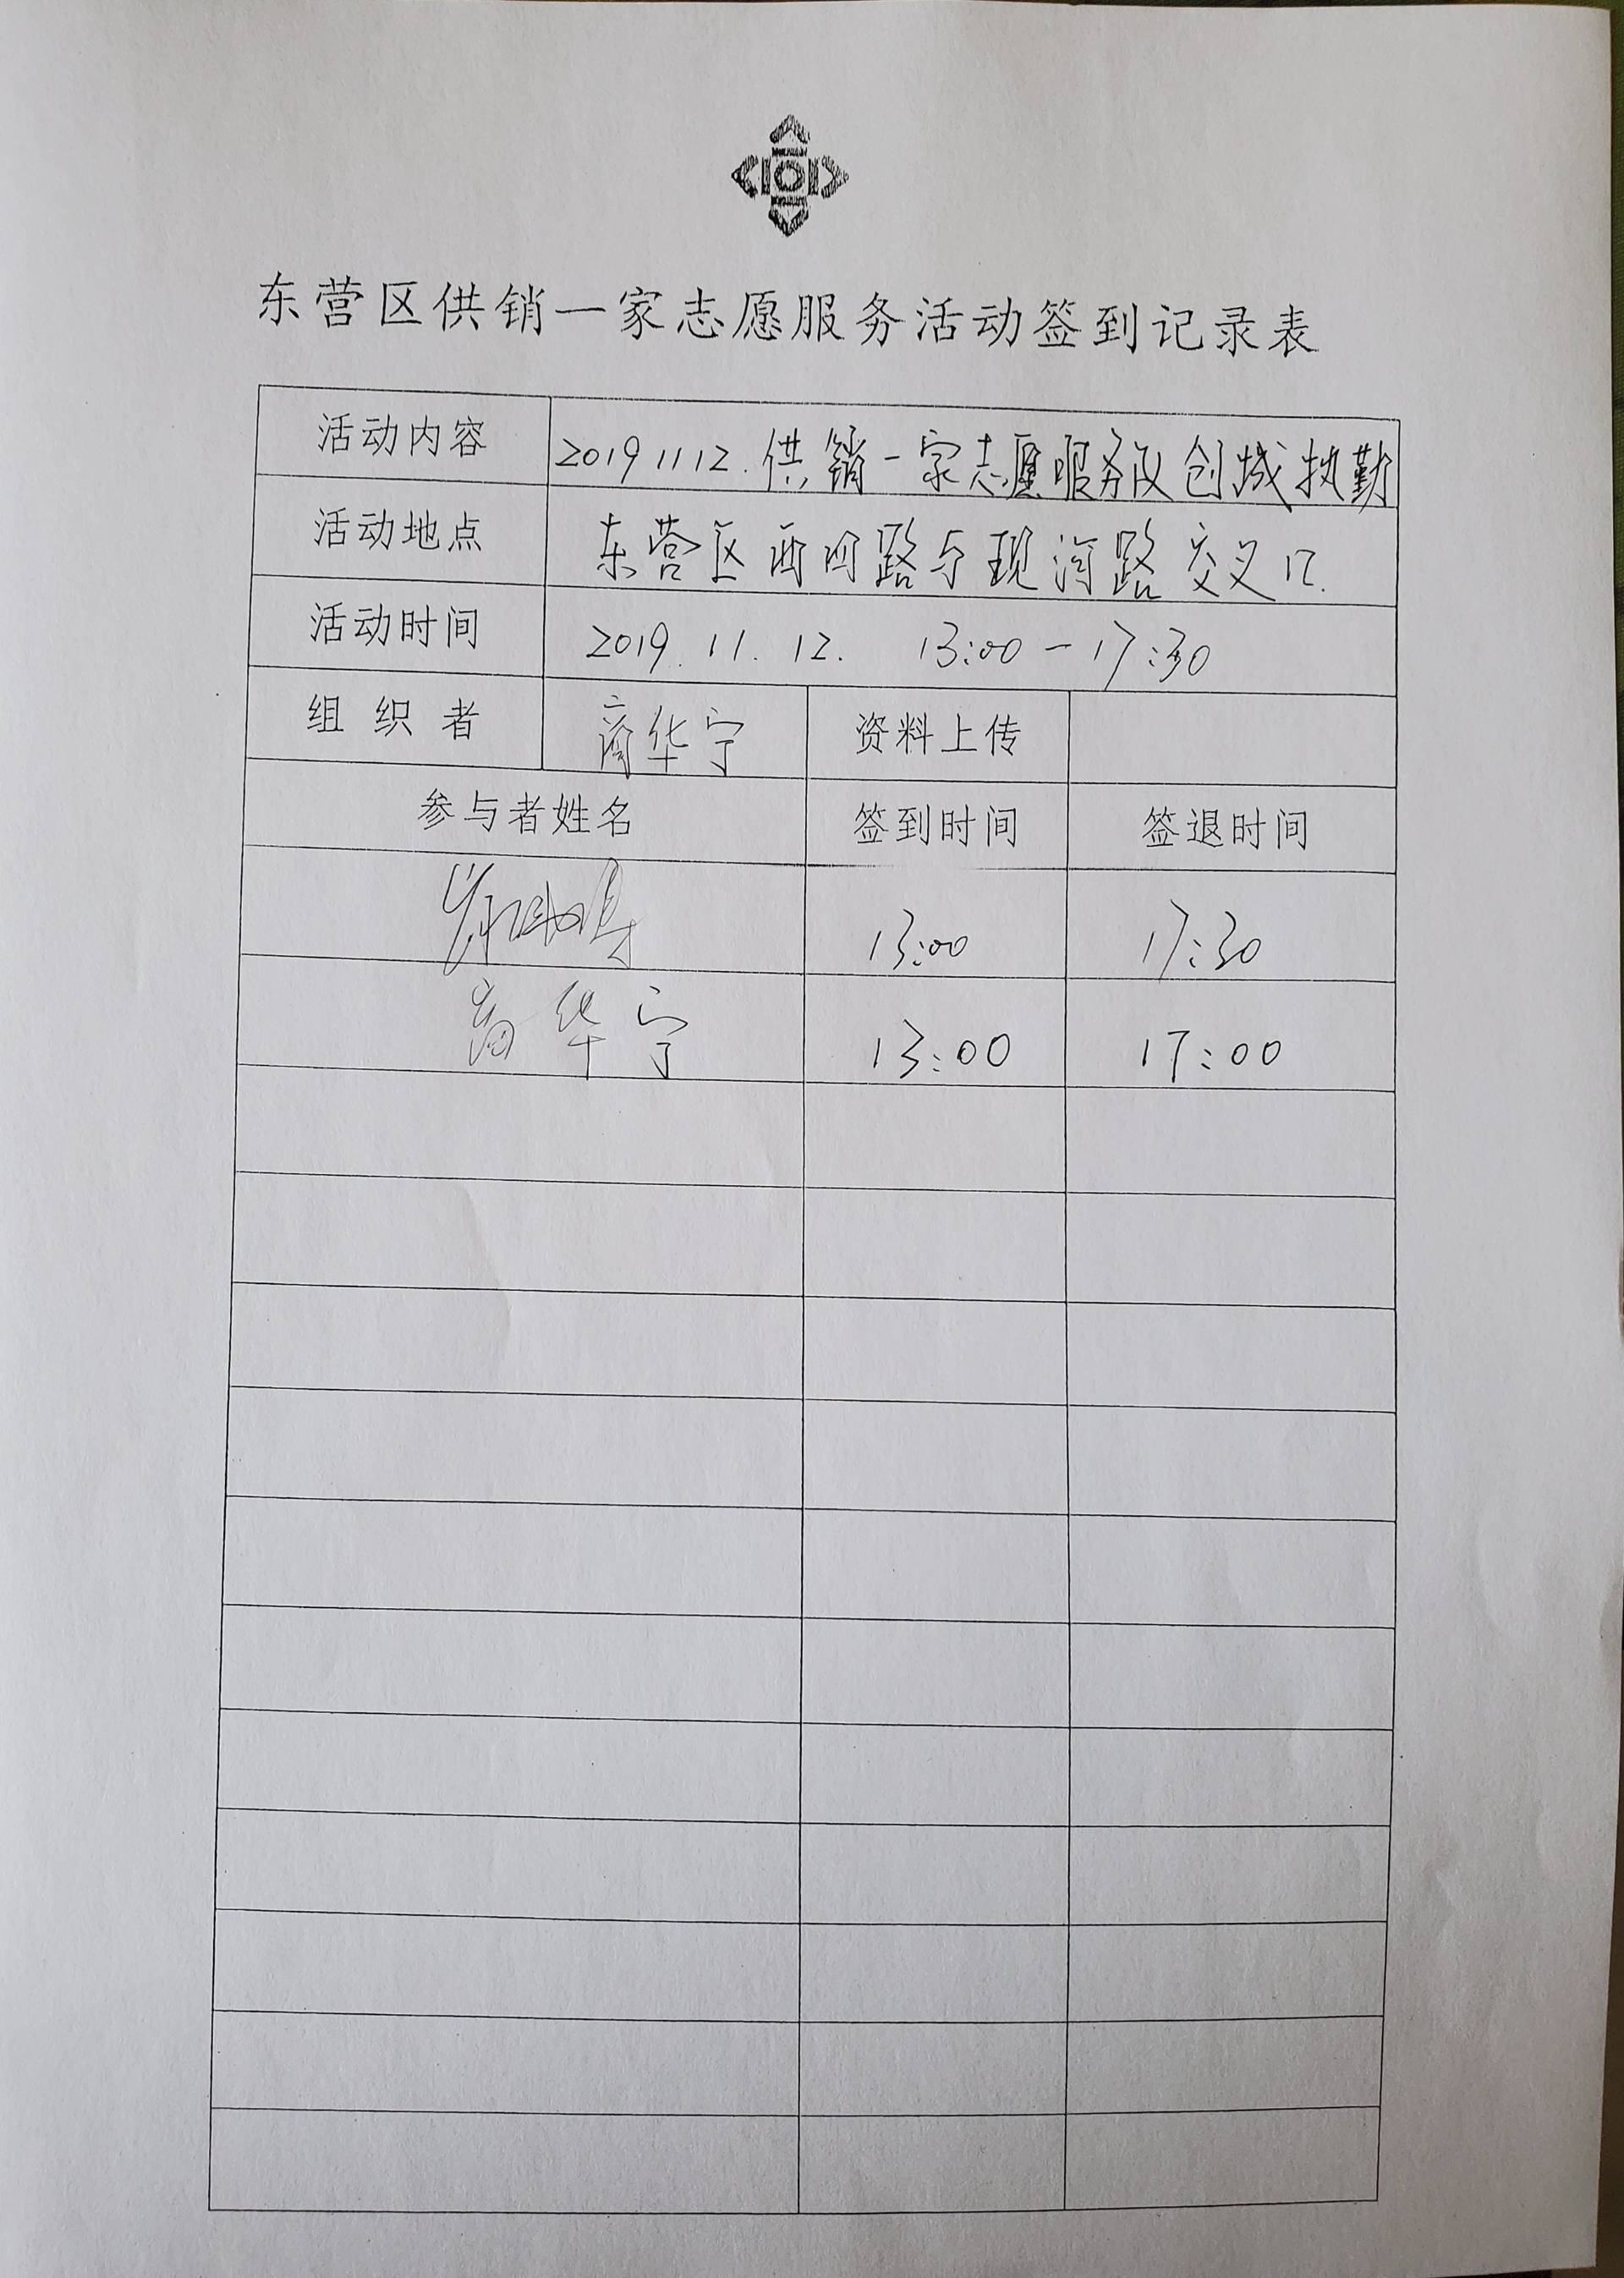 东营区供销一家志愿服务活动签到记录表
活动内容 2019 11 12. 供销一家志愿服务队创城执勤
活动地点 东营区西四路与现河路交叉口.
活动时间 2019. 11. 12. 13:00-17:30
组织者 商华宁 资料上传
参与者姓名 签到时间 签退时间
13:00 17:30
商华宁 13:00 17:00